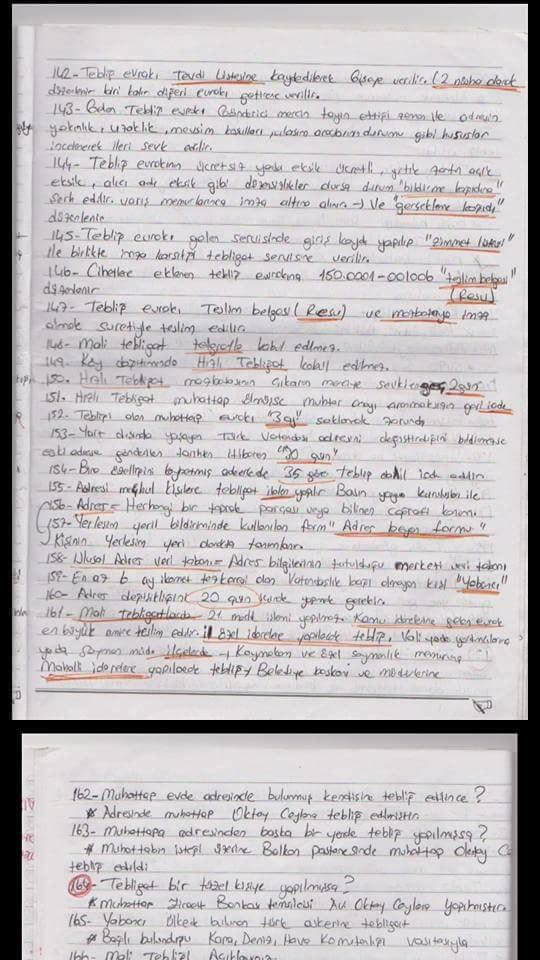 142- Tebliğ evrakı Tevdi Listesine kaydedilerek Gişeye verilir. (2 nüsha olarak
düzenlenir biri kalır diğeri evrakı getirene verilir.
143- Gelen Tebliğ evrakı Gönderici mercin tayin ettiği zaman ile adresin
yakınlık, uzaklık, mevsim koşulları, ulaşım araclarının durumu gibi hususlar
incelenerek ileri sevk edilir.
144- Tebliğ evrakının ücretsiz yada eksik ücretli, yırtık zarfın açık
eksik, alıcı adı eksik gibi düzensizlikler olursa durum "bildirme kağıdına"
Şerh edilir. varış memurlarınca imza altına alınır → Ve "gerçekleme kağıdı"
düzenlenir
145- Tebliğ evrakı gelen servisinde giriş kaydı yapılıp "zimmet listesi"
ile birlikte imza karşılığı tebligat servisine verilir.
146- Cihetlere eklenen tebliğ evrakına 150.0001-001006 "teslim belgesi"
düzenlenir (Resu)
147- Tebliğ evrakı, Teslim belgesi (Resu) ve mazbataya imza
almak suretiyle teslim edilir
148- Mali tebligat telgrafla kabul edilmez.
149. Köy dağıtımında Hızlı Tebligat kabul edilmez.
150. Hızlı Tebligat mazbatasının çıkaran merciye sevkten geç 2 gün
151. Hızlı Tebligat muhattap ölmüşse muhtar onayı aranmaksızın geri iade
152- Tebliği alan muhattap evrakı "3 ay" saklamak zorunda
153- Yurt dışında yaşayan Türk Vatandaşı adresini değiştirdiğini bildirmezse
eski adrese gönderilen tarihten itibaren "30 gün"
154- Büro özelliğini kaybetmiş adreslerde 35 göre tebliğ dahil iade edilir
155- Adresi meçhul kişilere tebligat ilalen yapılır Basın yayın kuruluşları ile
156- Adres = Herhangi bir toprak parçası veya binanın coğrafi konumu
157- Yerleşim yeri bildiriminde kullanılan form "Adres beyan formu"
Kişinin Yerleşim yeri olarakta tanımlanır.
158- Ulusal Adres veri tabanı = Adres bilgilerinin tutulduğu merkezi veri tabanı
159- En az 6 ay ikamet tezkeresi olan Vatandaşlık bağı olmayan kişi "Yabancı"
160- Adres değişikliğini 20 gün içinde yapmak gerekir.
161- Mali Tebligatlarda 21 madde işlemi yapılmaz. Kamu idarelerine gelen evrak
en büyük amire teslim edilir. il özel idaresine yapılacak tebliğ, Vali yada yardımcılarına
yada Sayman müdür ilçelerde → Kaymakam ve özel saymanlık memuruna
Mahalli idarelere yapılacak tebliğ → Belediye başkanı ve müdürlerine
162- Muhattap evde adresinde bulunmuş kendisine tebliğ edilince?
* Adresinde muhattap Oktay Ceylana tebliğ edilmiştir
163- Muhattapa adresinden başka bir yerde tebliğ yapılmışsa?
* Muhattabın isteği üzerine Balkon pastanesinde muhattap Oktay Ce
tebliğ edildi
164- Tebligat bir tüzel kişiye yapılmışsa?
* Muhattap Ziraat Bankası temsilcisi Av Oktay Ceylana yapılmıştır
165- Yabancı Ülkede bulunan türk askerine tebligat
* Bağlı bulunduğu Kara, Deniz, Hava Komutanlığı vasıtasıyla
166- Mali Tebliği